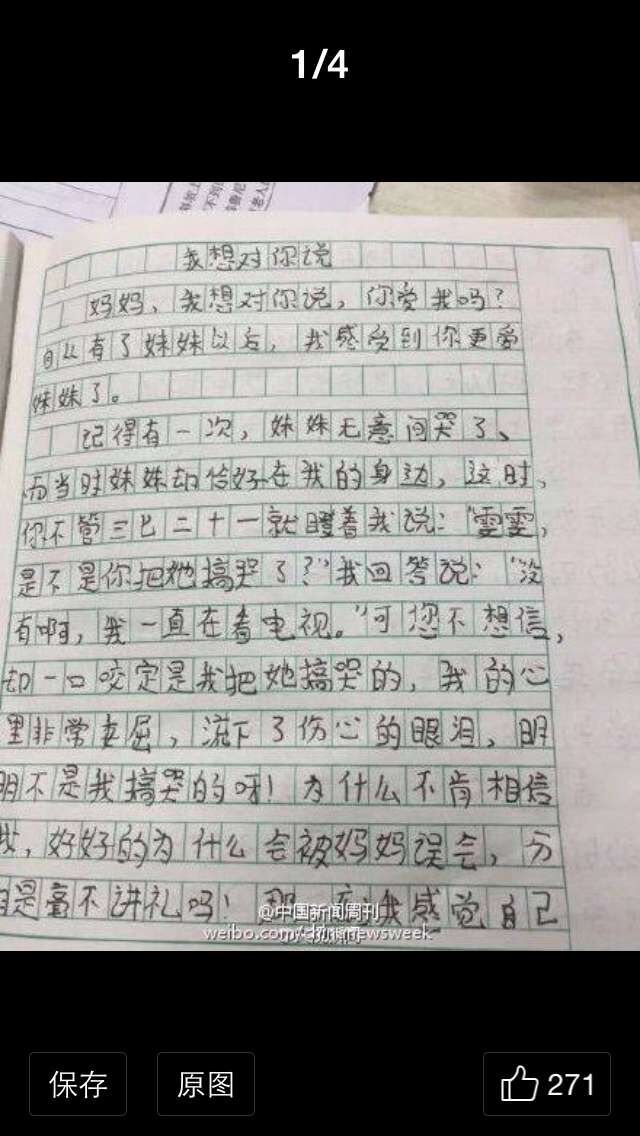 1/4
我想对你说
妈妈，我想对你说，你爱我吗？
自从有了妹妹以后，我感受到你更爱
妹妹了。
记得有一次，妹妹无意间哭了、
而当时妹妹却恰好在我的身边，这时，
你不管三七二十一就瞪着我说：“雯雯，
是不是你把她搞哭了？”我回答说：“没
有啊，我一直在看电视。”可您不想信，
却一口咬定是我把她搞哭的，我的心
里非常委屈，流下了伤心的眼泪，明
明不是我搞哭的呀！为什么不肯相信
我，好好的为什么会被妈妈误会，分
明是毫不讲礼吗！那 我感觉自己
@中国新闻周刊
weibo.com/chinanewsweek
保存
原图
271